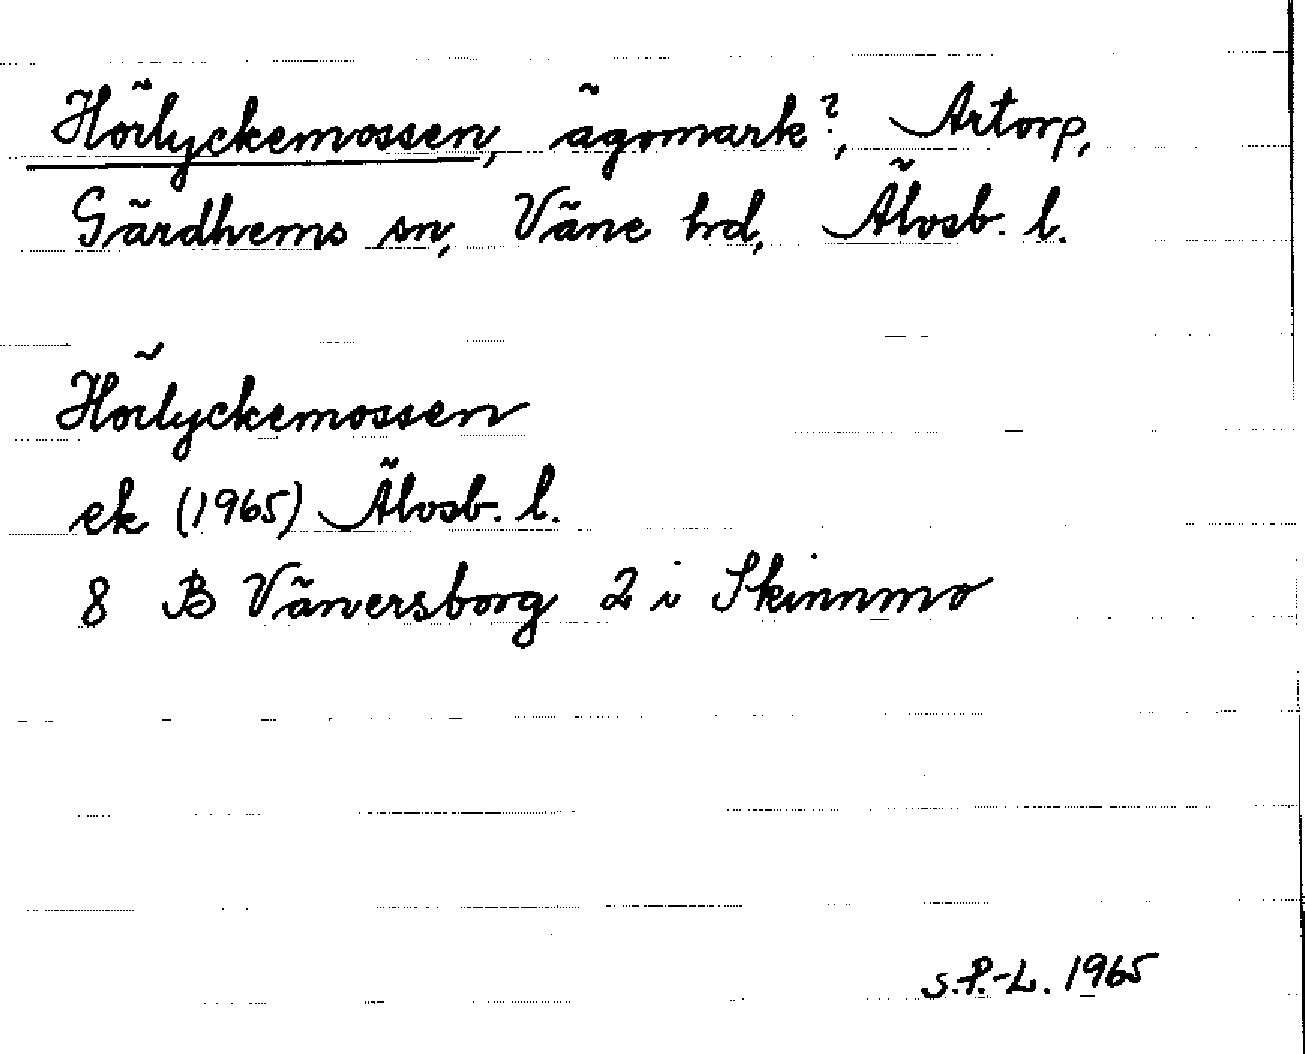 Hörlyckemossen, ägomark?, Artorp,
Gärdhems sn, Väne hd, Älvsb. l.
Hörlyckemossen
ek (1965) Älvsb. l.
8 B Vänersborg 2 i Skinnmo
S.P.-L. 1965